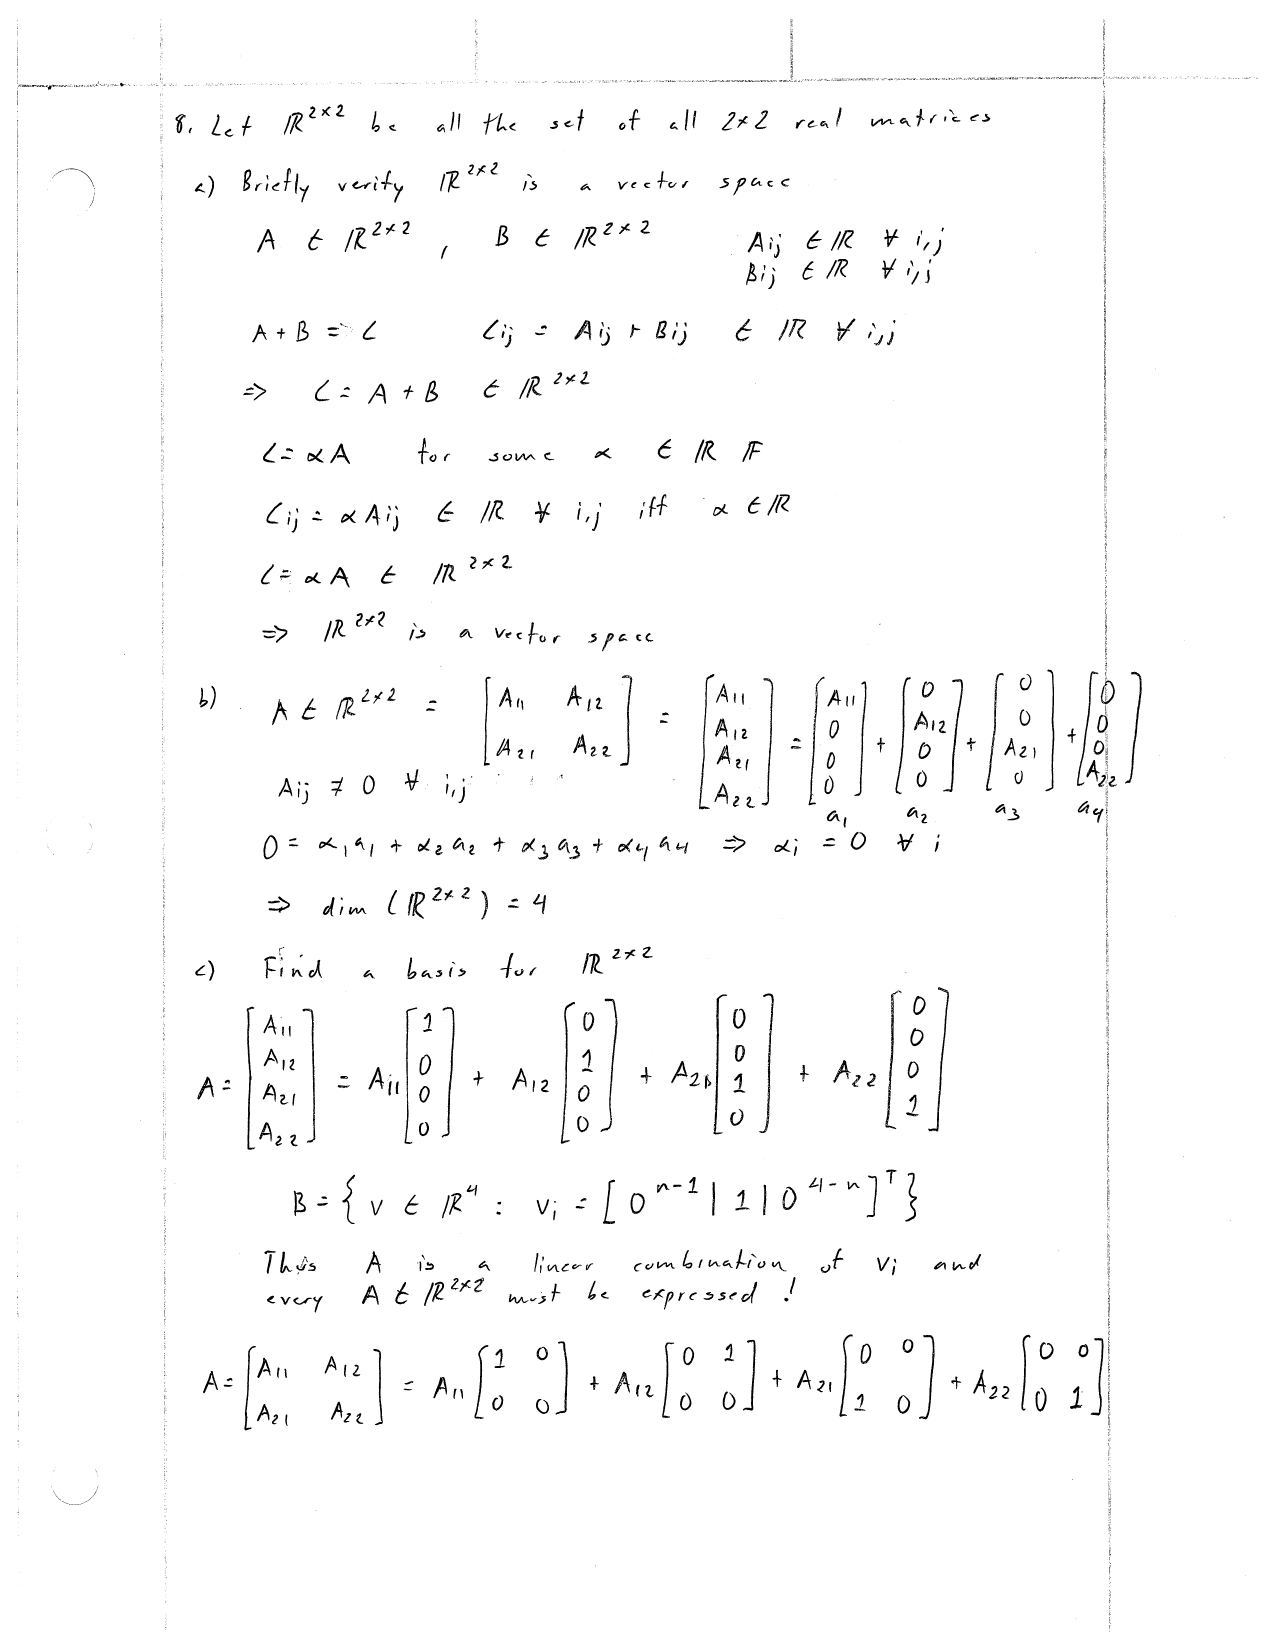 8. Let ℝ^{2×2} be all the set of all 2×2 real matrices
a) Briefly verify ℝ^{2×2} is a vector space
A ∈ ℝ^{2×2} , B ∈ ℝ^{2×2} A_{ij} ∈ ℝ ∀ i,j
B_{ij} ∈ ℝ ∀ i,j
A + B = C C_{ij} = A_{ij} + B_{ij} ∈ ℝ ∀ i,j
⇒ C = A + B ∈ ℝ^{2×2}
C = αA for some α ∈ ℝ 𝔽
C_{ij} = αA_{ij} ∈ ℝ ∀ i,j iff α ∈ ℝ
C = αA ∈ ℝ^{2×2}
⇒ ℝ^{2×2} is a vector space
b) A ∈ ℝ^{2×2} = [A_{11} A_{12}; A_{21} A_{22}] = [A_{11}; A_{12}; A_{21}; A_{22}] = [A_{11}; 0; 0; 0] + [0; A_{12}; 0; 0] + [0; 0; A_{21}; 0] + [0; 0; 0; A_{22}]
A_{ij} ≠ 0 ∀ i,j a_1 a_2 a_3 a_4
0 = α_1 a_1 + α_2 a_2 + α_3 a_3 + α_4 a_4 ⇒ α_i = 0 ∀ i
⇒ dim (ℝ^{2×2}) = 4
c) Find a basis for ℝ^{2×2}
A = [A_{11}; A_{12}; A_{21}; A_{22}] = A_{11} [1; 0; 0; 0] + A_{12} [0; 1; 0; 0] + A_{21} [0; 0; 1; 0] + A_{22} [0; 0; 0; 1]
B = { v ∈ ℝ^4 : v_i = [0^{n-1} | 1 | 0^{4-n}]^T }
Thus A is a linear combination of v_i and
every A ∈ ℝ^{2×2} must be expressed !
A = [A_{11} A_{12}; A_{21} A_{22}] = A_{11} [1 0; 0 0] + A_{12} [0 1; 0 0] + A_{21} [0 0; 1 0] + A_{22} [0 0; 0 1]